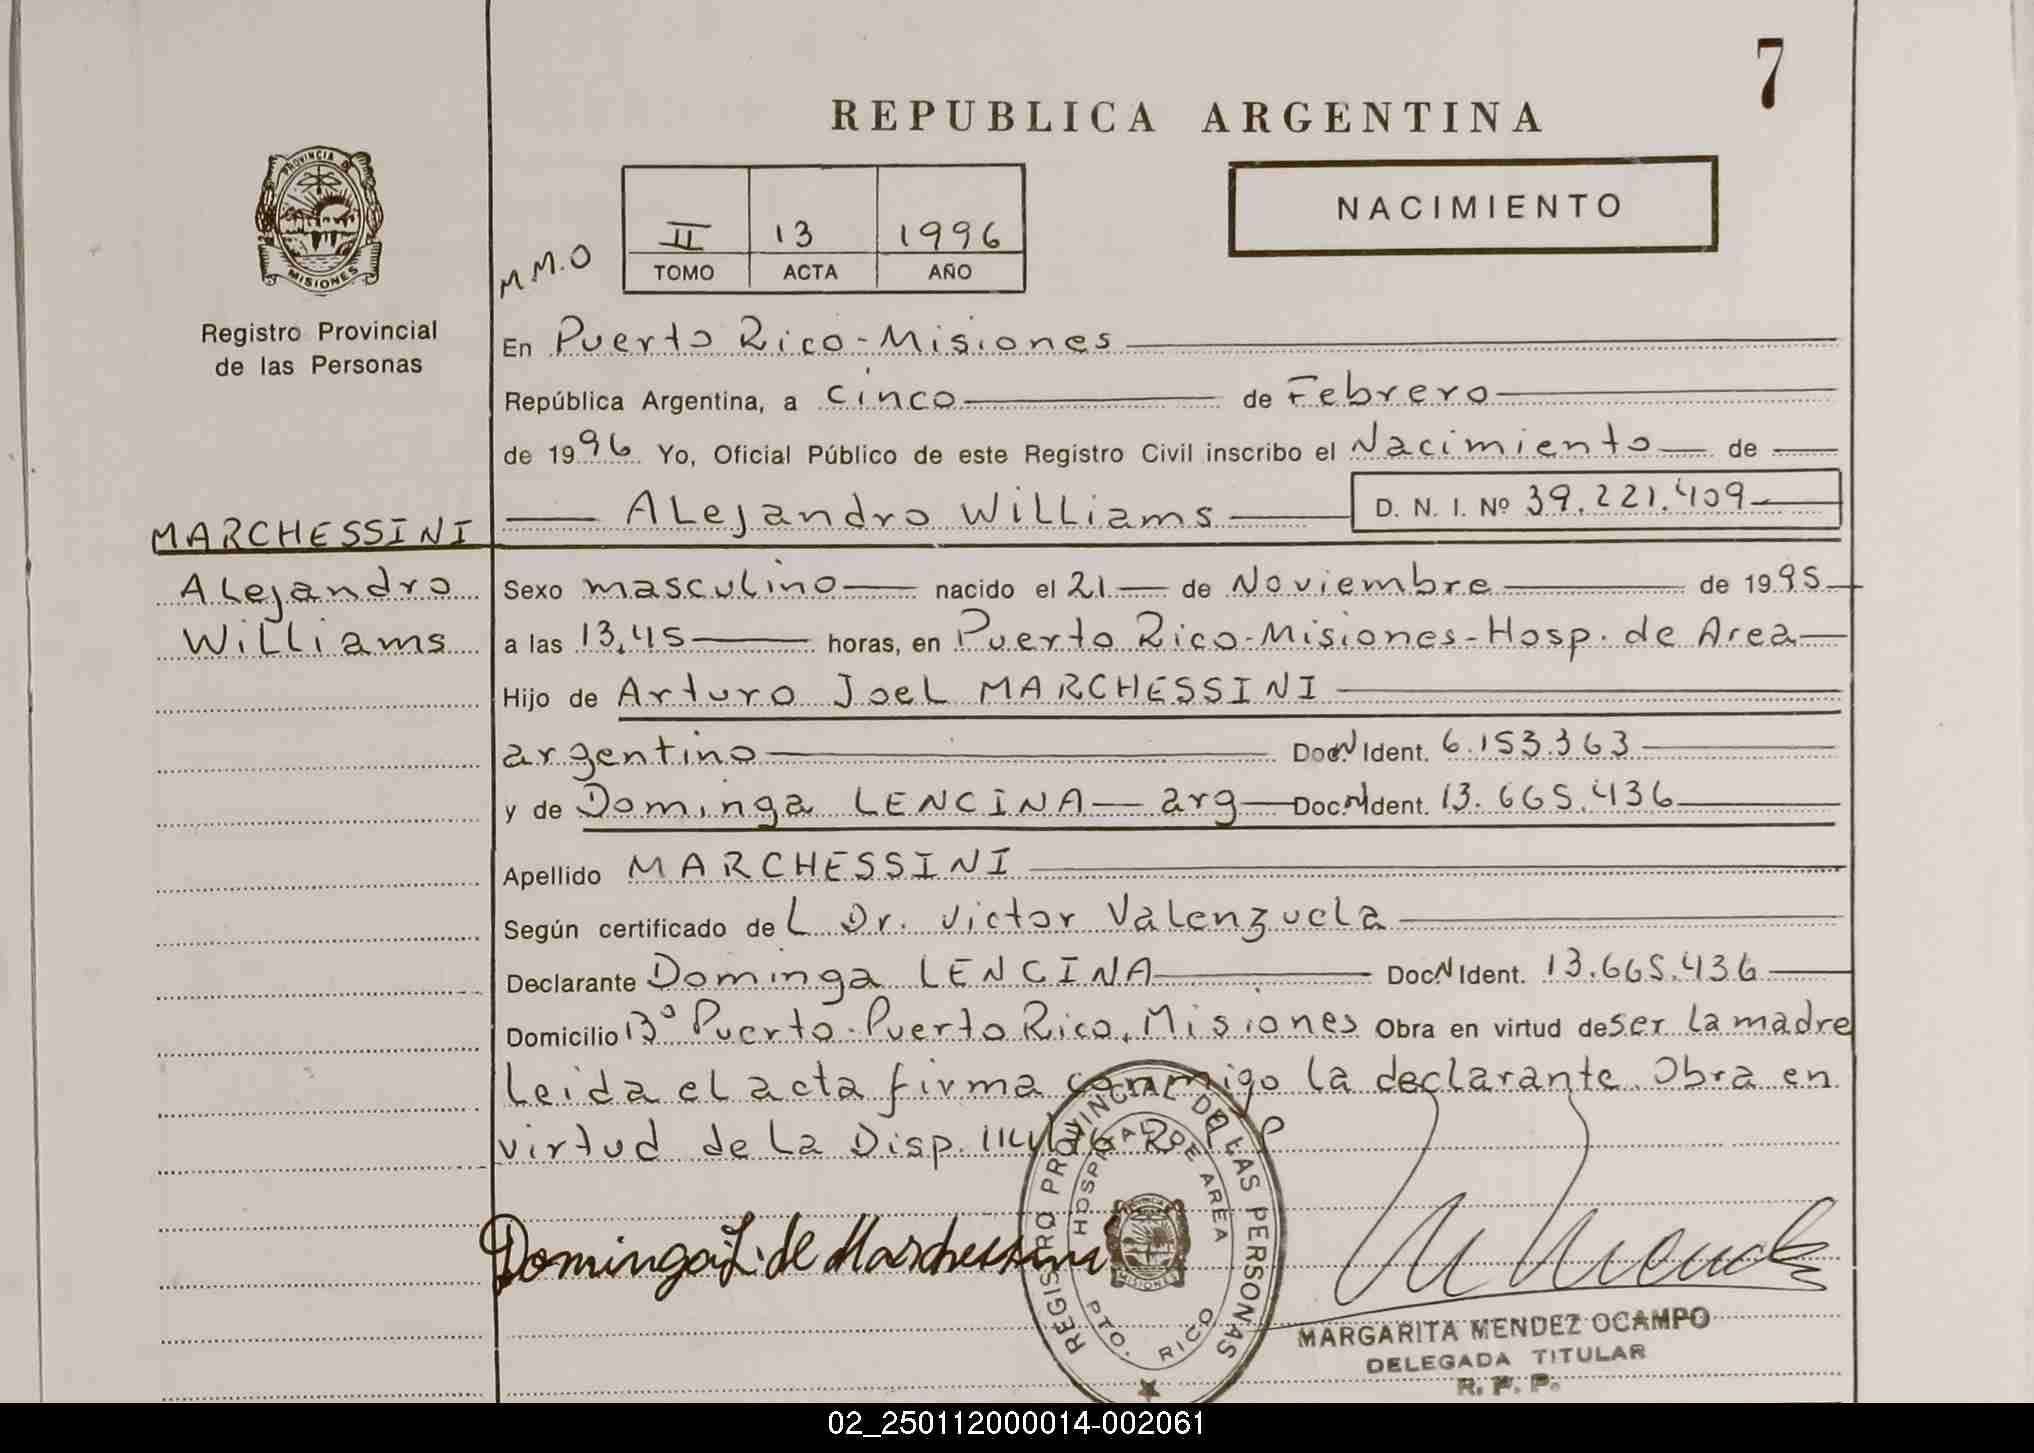 7
REPUBLICA ARGENTINA
PROVINCIA DE
MISIONES
Registro Provincial
de las Personas
NACIMIENTO
M.M.O
II 13 1996
TOMO ACTA AÑO
En Puerto Rico-Misiones
República Argentina, a cinco de Febrero
de 1996 Yo, Oficial Público de este Registro Civil inscribo el Nacimiento de
Alejandro Williams D. N. I. Nº 39.221.409
MARCHESSINI
Alejandro
Williams
Sexo masculino nacido el 21 de Noviembre de 1995
a las 13,45 horas, en Puerto Rico-Misiones-Hosp. de Area
Hijo de Arturo Joel MARCHESSINI
argentino Doc. N Ident. 6.153.363
y de Dominga LENCINA arg Doc. N Ident. 13.665.436
Apellido MARCHESSINI
Según certificado de L Dr. Victor Valenzuela
Declarante Dominga LENCINA Doc. N Ident. 13.665.436
Domicilio 13º Puerto-Puerto Rico, Misiones Obra en virtud de ser la madre
Leida el acta firma conmigo la declarante. Obra en
virtud de la Disp. R P P
Dominga L. de Marchessini
REGISTRO PROVINCIAL DE LAS PERSONAS
HOSPITAL DE AREA
MISIONES
PTO. RICO
MARGARITA MENDEZ OCAMPO
DELEGADA TITULAR
R. P. P.
02_250112000014-002061